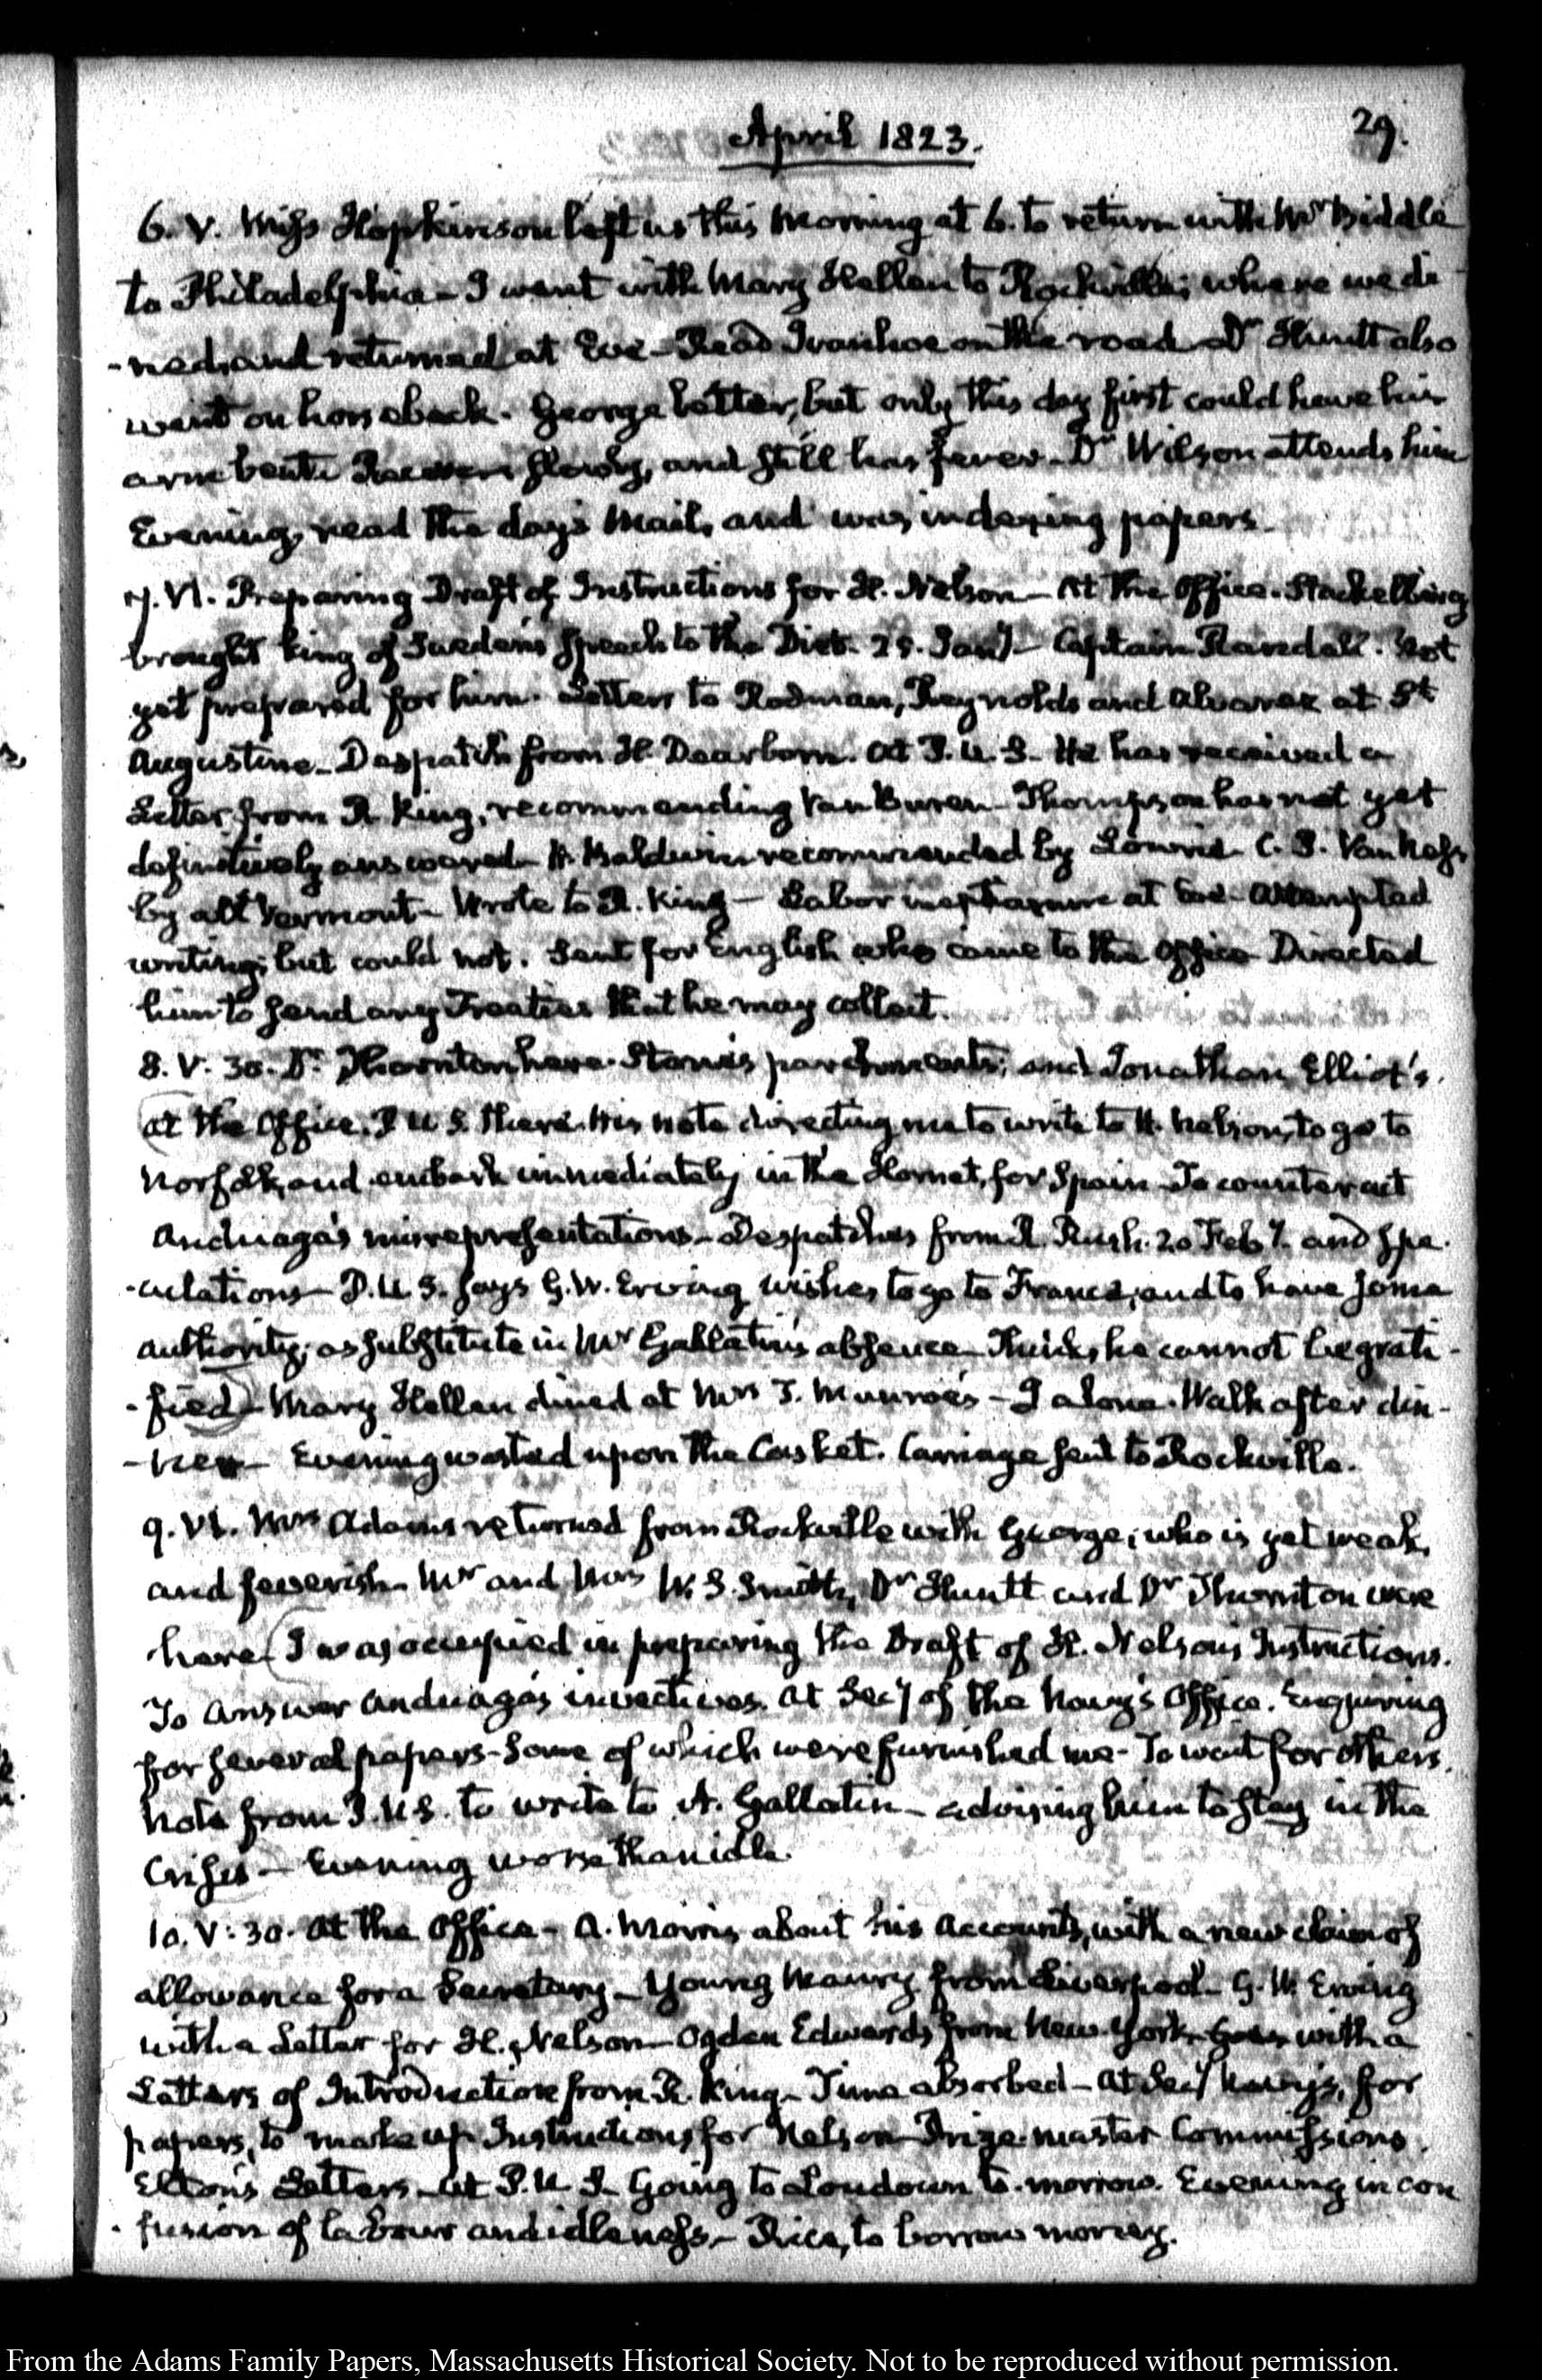 April 1823.
29.
6. V. Miss Hopkinson left us this Morning at 6. to return with Mr Biddle
to Philadelphia - I went with Mary Hellen to Rockville; where we di-
-ned, and returned at Eve - Read Ivanhoe on the road - Dr Huntt also
went on horseback. George better, but only this day first could have his
arm bent. slowly, and still has fever - Dr Wilson attends him
Evening, read the day's Mail, and was indexing papers.
7. VI. Preparing Draft of Instructions for H. Nelson - At the Office. Stackelberg
brought King of Sweden's Speech to the Diet. Jany - Captain Randall. Not
yet prepared for him. Letters to Rodman, Reynolds and Alvarez at St
Augustine - Despatch from H. Dearborn. At P. U. S - He has received a
Letter from R King, recommending Van Buren - Thompson has not yet
definitively answered - H. Baldwin recommended by Lowrie - C. P. Van Ness
by all Vermont - Wrote to R. King - Labor at Eve - Attempted
writing; but could not. Sent for English who came to the Office - Directed
him to send any Treaties that he may collect.
8. V. 30. Dr Thornton here. Stone's parchments; and Jonathan Elliot's.
At the Office. P U S. there. His note directing me to write to H. Nelson, to go to
Norfolk, and embark immediately in the Hornet, for Spain - To counteract
Anduaga's misrepresentations - Despatches from R. Rush. 20 Feby. and spe-
-culations - P. U. S. says G. W. Erving wishes to go to France; and to have some
authority; as substitute in Mr Gallatin's absence - Thinks he cannot be grati-
-fied - Mary Hellen dined at Mrs T. Munroe's - I alone. Walk after din-
-ner - Evening wasted upon the Casket. Carriage sent to Rockville.
9. VI. Mrs Adams returned from Rockville with George; who is yet weak,
and feverish - Mr and Mrs W. S. Smith, Dr Huntt and Dr Thornton were
here - I was occupied in preparing the Draft of H. Nelson's Instructions.
To answer Anduaga's invectives. At Secy of the Navy's Office. Enquiring
for several papers - Some of which were furnished me - To wait for others.
Note from P. U S. to write to A. Gallatin - advising him to stay in the
Crisis - Evening worse than idle.
10. V: 30. At the Office - A. Morris about his Accounts, with a new claim of
allowance for a Secretary - Young Maury from Liverpool - G. W. Erving
with a Letter for H. Nelson - Ogden Edwards from New-York with a
Letters of Introduction from R. King - Time absorbed - At Secy Navy's, for
papers, to make up Instructions for Nelson - Prize-master Commissions.
Elton's Letters - At P. U S - Going to Loudoun to-morrow. Evening in con
-fusion of labour and idleness - Rice, to borrow money.
From the Adams Family Papers, Massachusetts Historical Society. Not to be reproduced without permission.